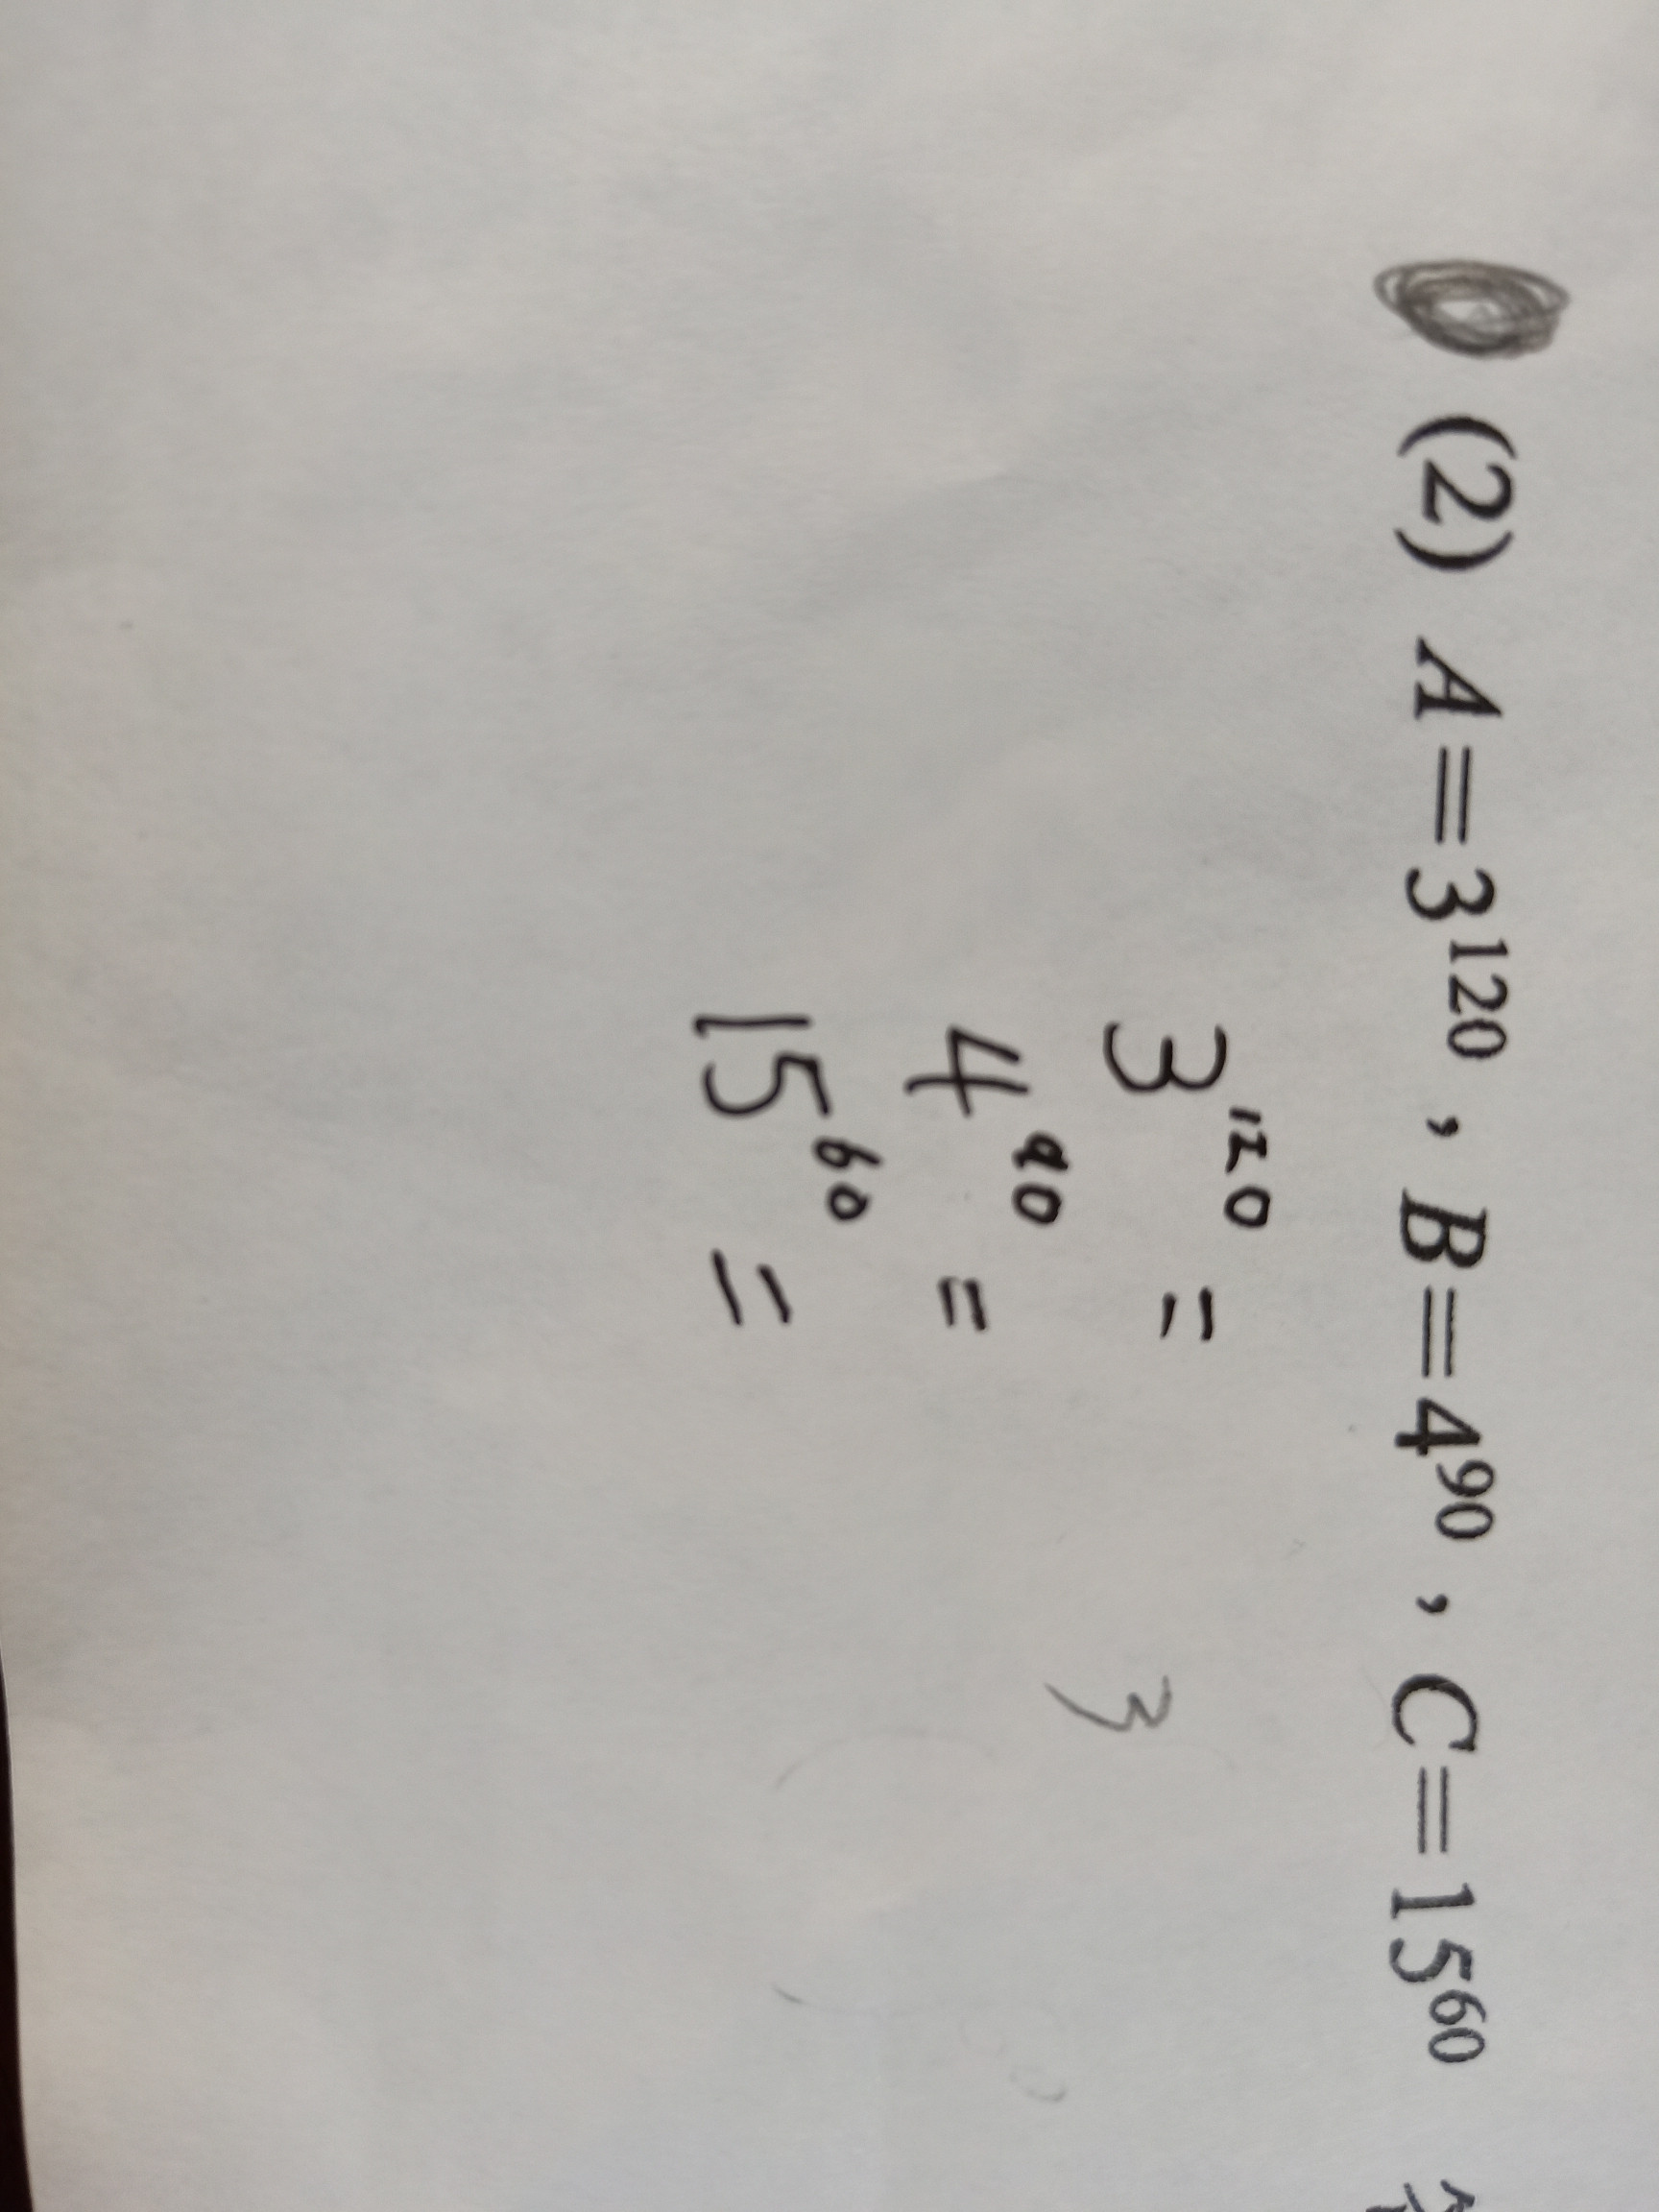 (2) A=3¹²⁰ , B=4⁹⁰ , C=15⁶⁰
3¹²⁰ =
3
4⁹⁰ =
15⁶⁰ =